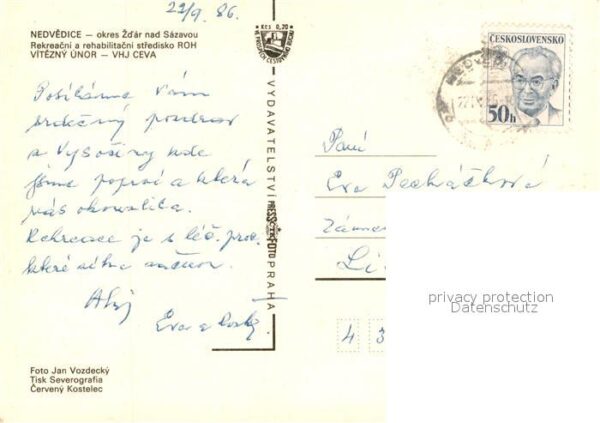 22/9. 86.
NEDVĚDICE — okres Žďár nad Sázavou
Rekreační a rehabilitační středisko ROH
VÍTĚZNÝ ÚNOR — VHJ CEVA
Kčs 0,20
ČESKOSLOVENSKO
50h
Posíláme Vám
srdečný pozdrav
z Vysočiny kde
jsme poprvé a která
nás okouzlila.
Rekreace je s léč. proc.
které
Ahoj
Eva a
VYDAVATELSTVÍ PRESSFOTO PRAHA
Paní
Eva Pecháčková
Li
4 3
privacy protection
Datenschutz
Foto Jan Vozdecký
Tisk Severografia
Červený Kostelec